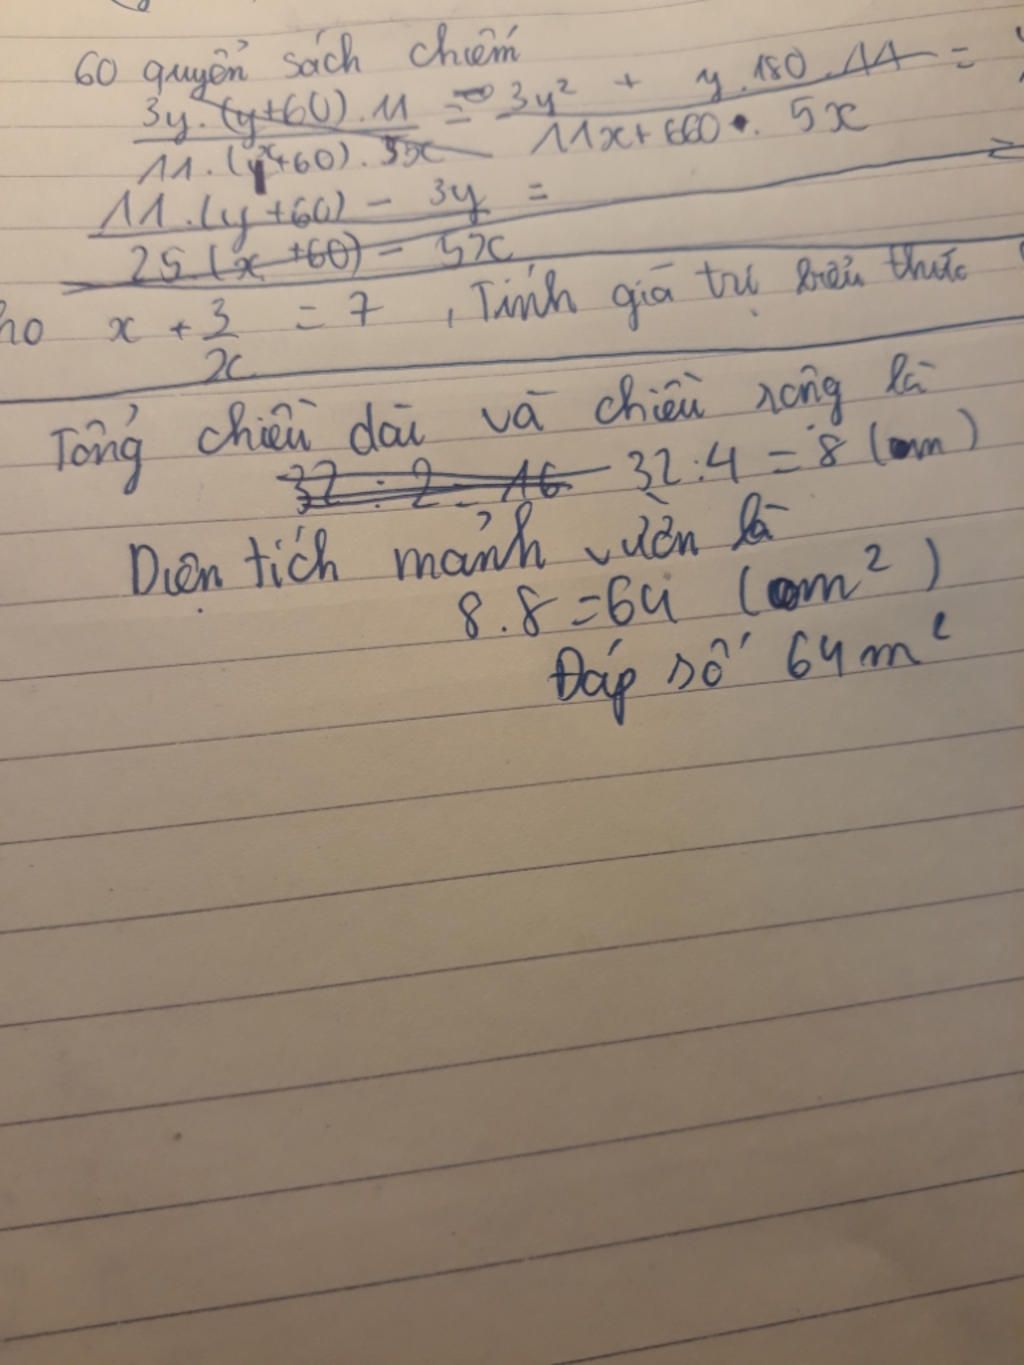 60 quyển sách chiếm
3y.(y+60).11 = 3y² + y.180.11 =
11.(x+60).5x 11x+660.5x
11.(y+60) - 3y =
25.(x+60) = 5x
ho x + 3 = 7 , Tính giá trị biểu thức
x
Tổng chiều dài và chiều rộng là
32 : 2 = 16 32:4 = 8 (m)
Diện tích mảnh vườn là
8.8=64 (m²)
Đáp số 64m²